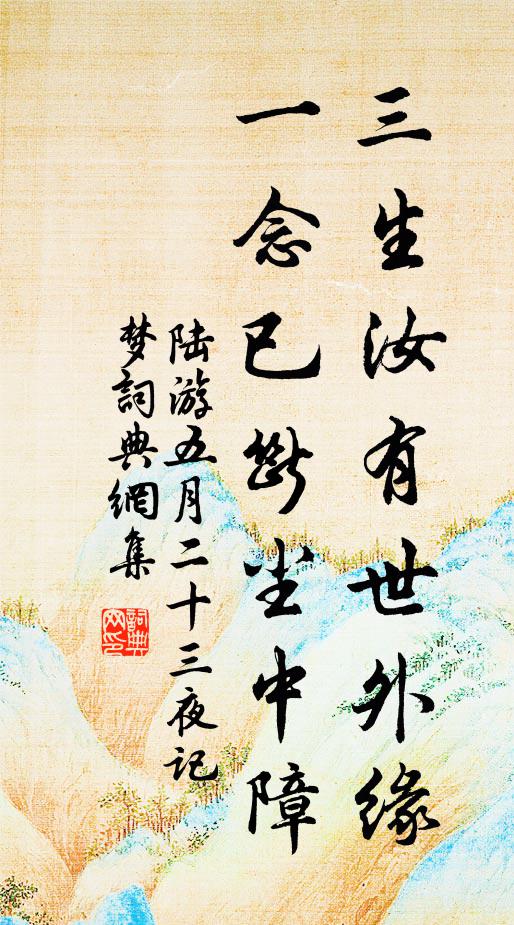 三生汝有世外緣
一念已斷尘中障
陆游五月二十三夜记
梦詞典網集
詞典